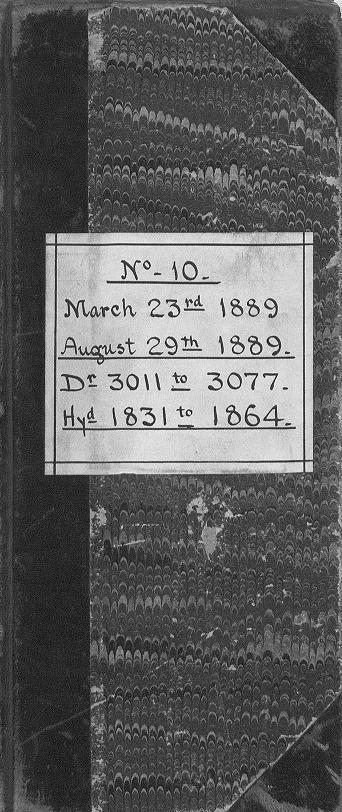 Nº-10-
March 23rd 1889
August 29th 1889.
Dr 3011 to 3077.
Hyd 1831 to 1864.